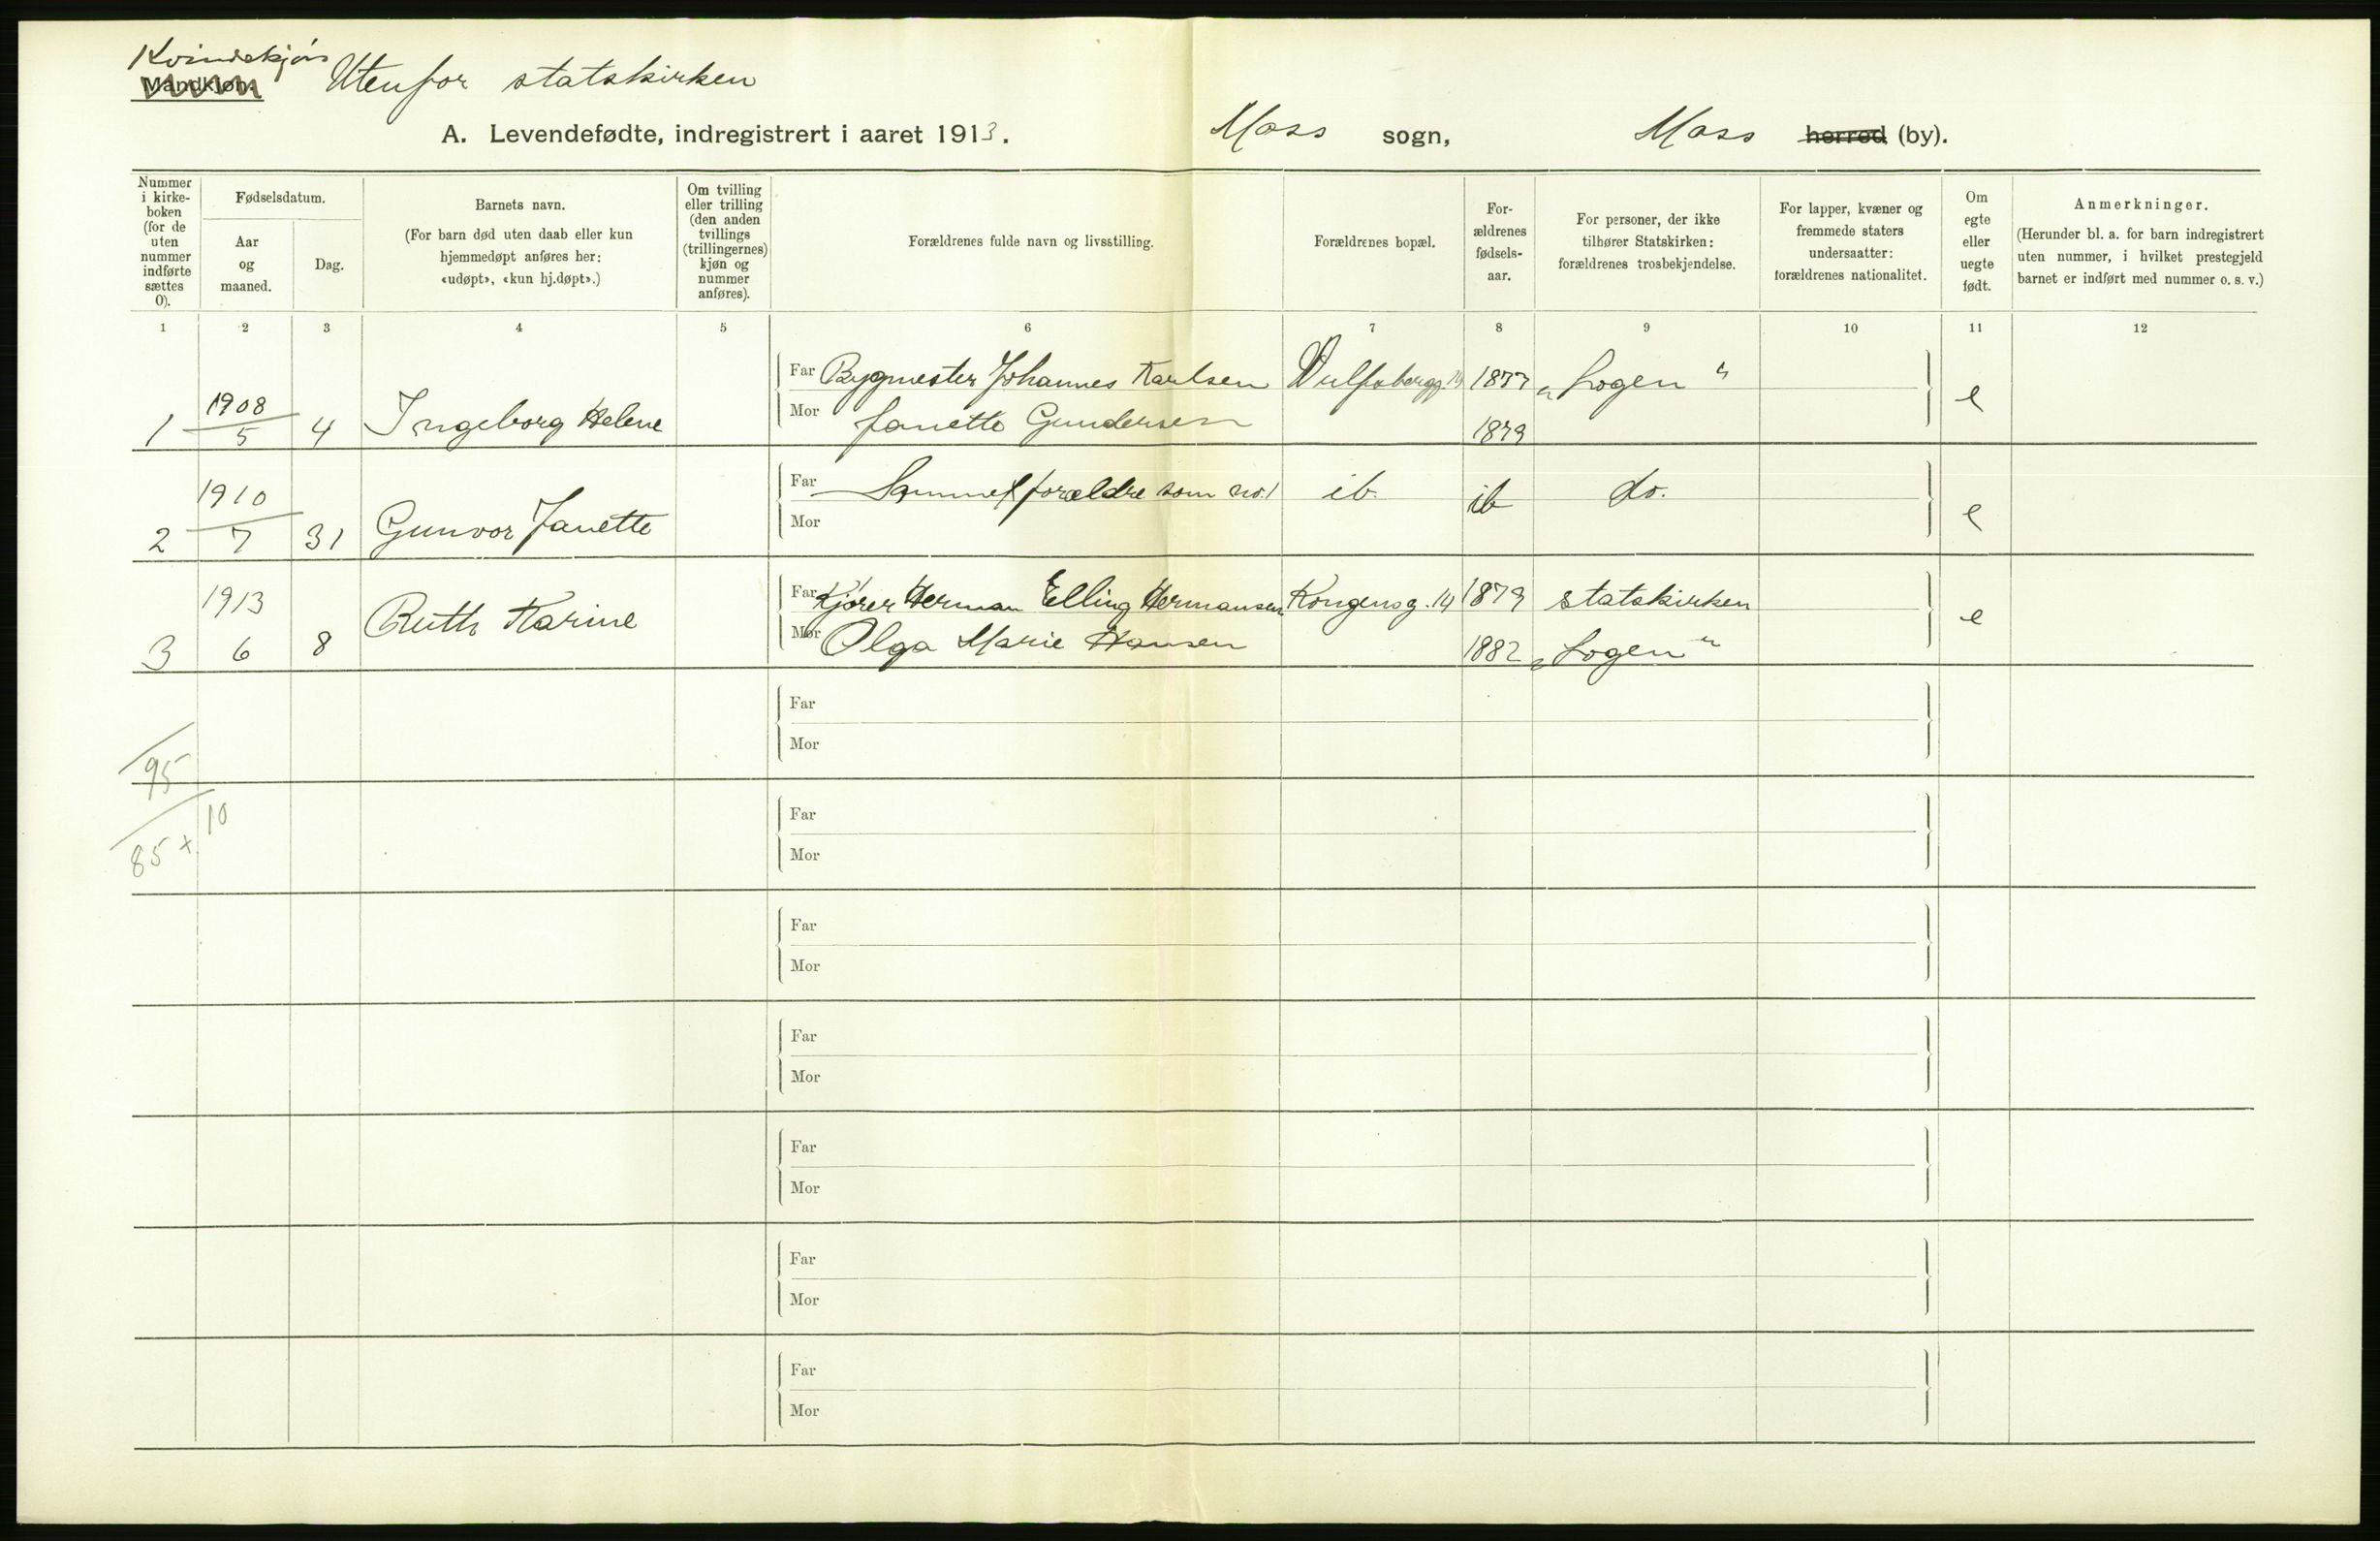 Kvindekjøn
Mandkjøn.
Utenfor statskirken
A. Levendefødte, indregistrert i aaret 1913.
Moss sogn, Moss herred (by).
Nummer i kirke- boken (for de uten nummer indførte sættes 0).
Fødselsdatum.
Aar og maaned.
Dag.
Barnets navn.
(For barn død uten daab eller kun hjemmedøpt anføres her: «udøpt», «kun hj.døpt».)
Om tvilling eller trilling (den anden tvillings (trillingernes) kjøn og nummer anføres).
Forældrenes fulde navn og livsstilling.
Forældrenes bopæl.
For- ældrenes fødsels- aar.
For personer, der ikke tilhører Statskirken: forældrenes trosbekjendelse.
For lapper, kvæner og fremmede staters undersaatter: forældrenes nationalitet.
Om egte eller uegte født.
Anmerkninger.
(Herunder bl. a. for barn indregistrert uten nummer, i hvilket prestegjeld barnet er indført med nummer o. s. v.)
1 2 3 4 5 6 7 8 9 10 11 12
Far Bygmester Johannes Karlsen Wulfsbergg. 14 1877 „Logen“
1 1908 5 4 Ingeborg Helene e
Mor Janette Gundersen 1879
Far Samme forældre som no. 1 ib. ib do.
2 1910 7 31 Gunvor Janette e
Mor
Far Kjører Herman Elling Hermansen Kongensg. 14 1879 statskirken
3 1913 6 8 Ruth Karine e
Mor Olga Marie Hansen 1882 „Logen“
Far
Mor
95
Far
10
85 +
Mor
Far
Mor
Far
Mor
Far
Mor
Far
Mor
Far
Mor